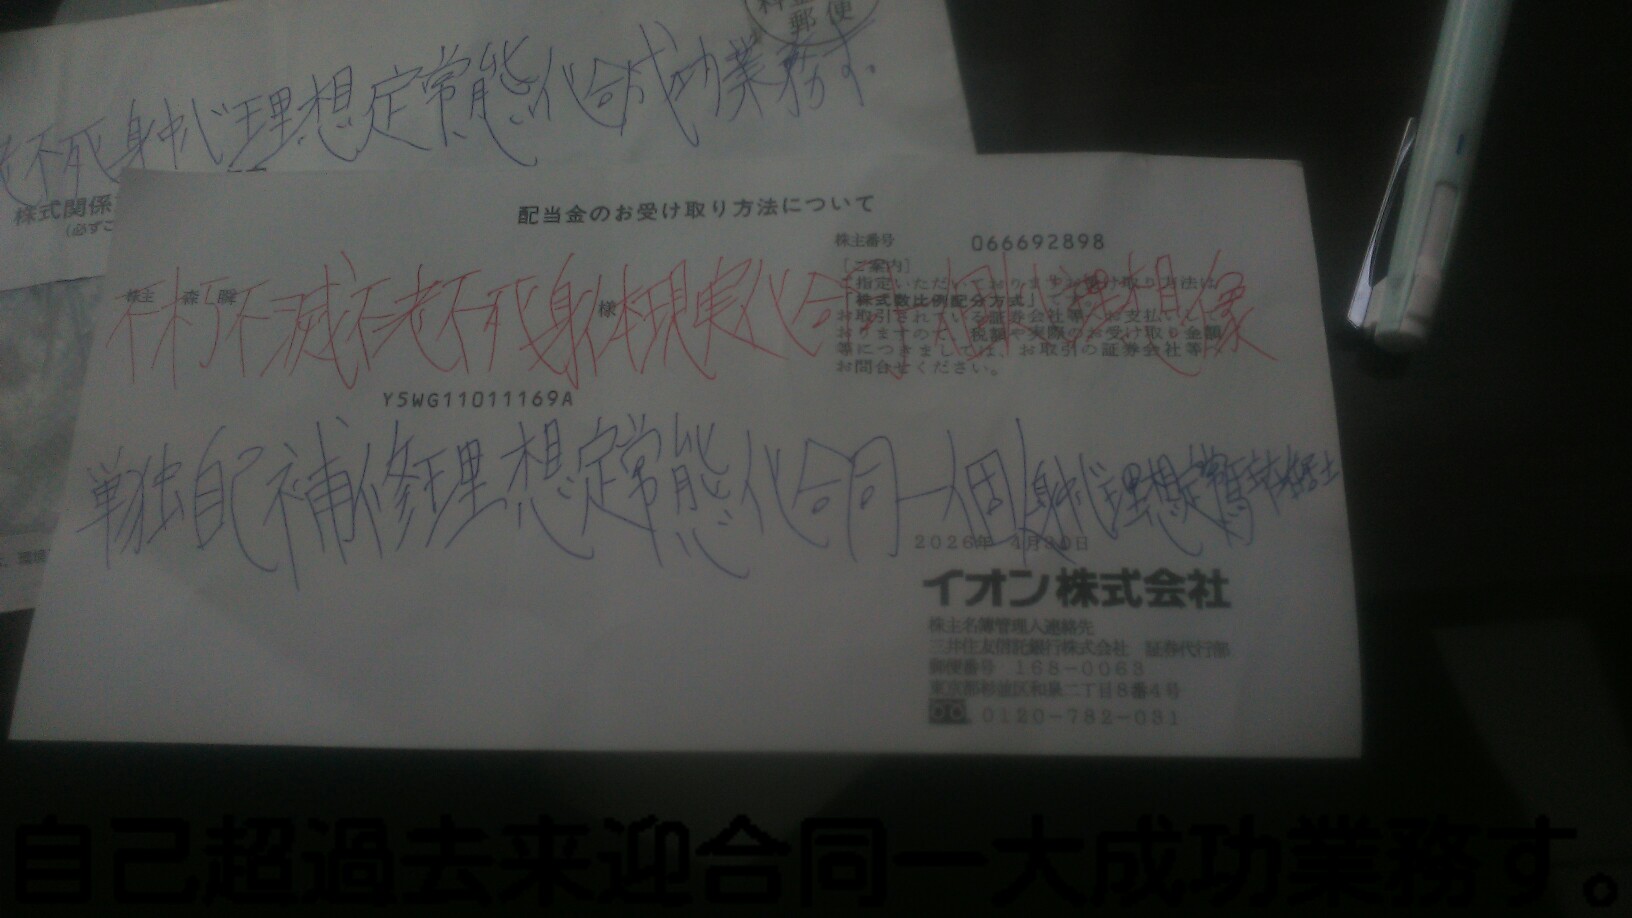 郵便
老不死身代理想定常態代合成功業務す。
株式関係
配当金のお受け取り方法について
株主番号 066692898
[ご案内]
ご指定いただいておりますお受け取り方法は
「株式数比例配分方式」です。
お取引されている証券会社等
おりますので、税額や実際のお受け取り金額
等につきましては、お取引の証券会社等
お問合せください。
株主 森 様
不朽不滅不老不死身体現実代合 理想像
Y5WG11011169A
単独自己補修理想定常態代合同一個身代理想定常
2026年 4月30日
イオン株式会社
株主名簿管理人連絡先
三井住友信託銀行株式会社 証券代行部
郵便番号 168-0063
東京都杉並区和泉二丁目8番4号
0120-782-031
自己超過去来迎合同一大成功業務す。